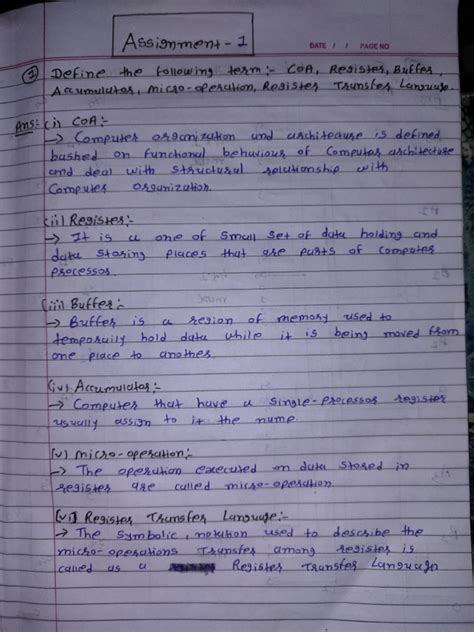 Assignment - 1
DATE / / PAGE NO
① Define the following term:- COA, Register, Buffer,
Accumulator, micro-operation, Register Transfer Language.
Ans:- (i) COA:-
→ Computer organization and architecture is defined
bashed on functional behaviour of Computer architecture
and deal with structural relationship with
Computer organization.
(ii) Register:-
→ It is a one of small set of data holding and
data storing places that are parts of computer
processor.
(iii) Buffer:-
→ Buffer is a region of memory used to
temporaily hold data while it is being moved from
one place to another.
(iv) Accumulator:-
→ Computer that have a single-processor register
usually assign to it the name.
(v) micro-operation:-
→ The operation executed on data stored in
register are called micro-operation.
(vi) Register Transfer Language:-
→ The symbolic, notation used to describe the
micro-operations Transfer among register is
called as a Register Transfer Language